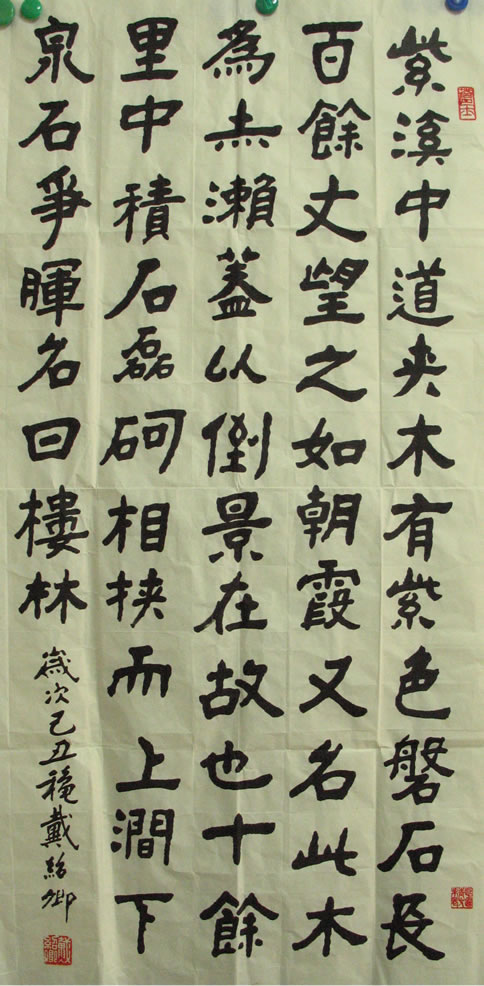 紫溪中道夹木有紫色磐石長
百餘丈望之如朝霞又名此木
為赤瀨蓋以倒景在故也十餘
里中積石磊砢相挟而上澗下
泉石爭暉名曰樓林
歲次己丑穐戴紹卿